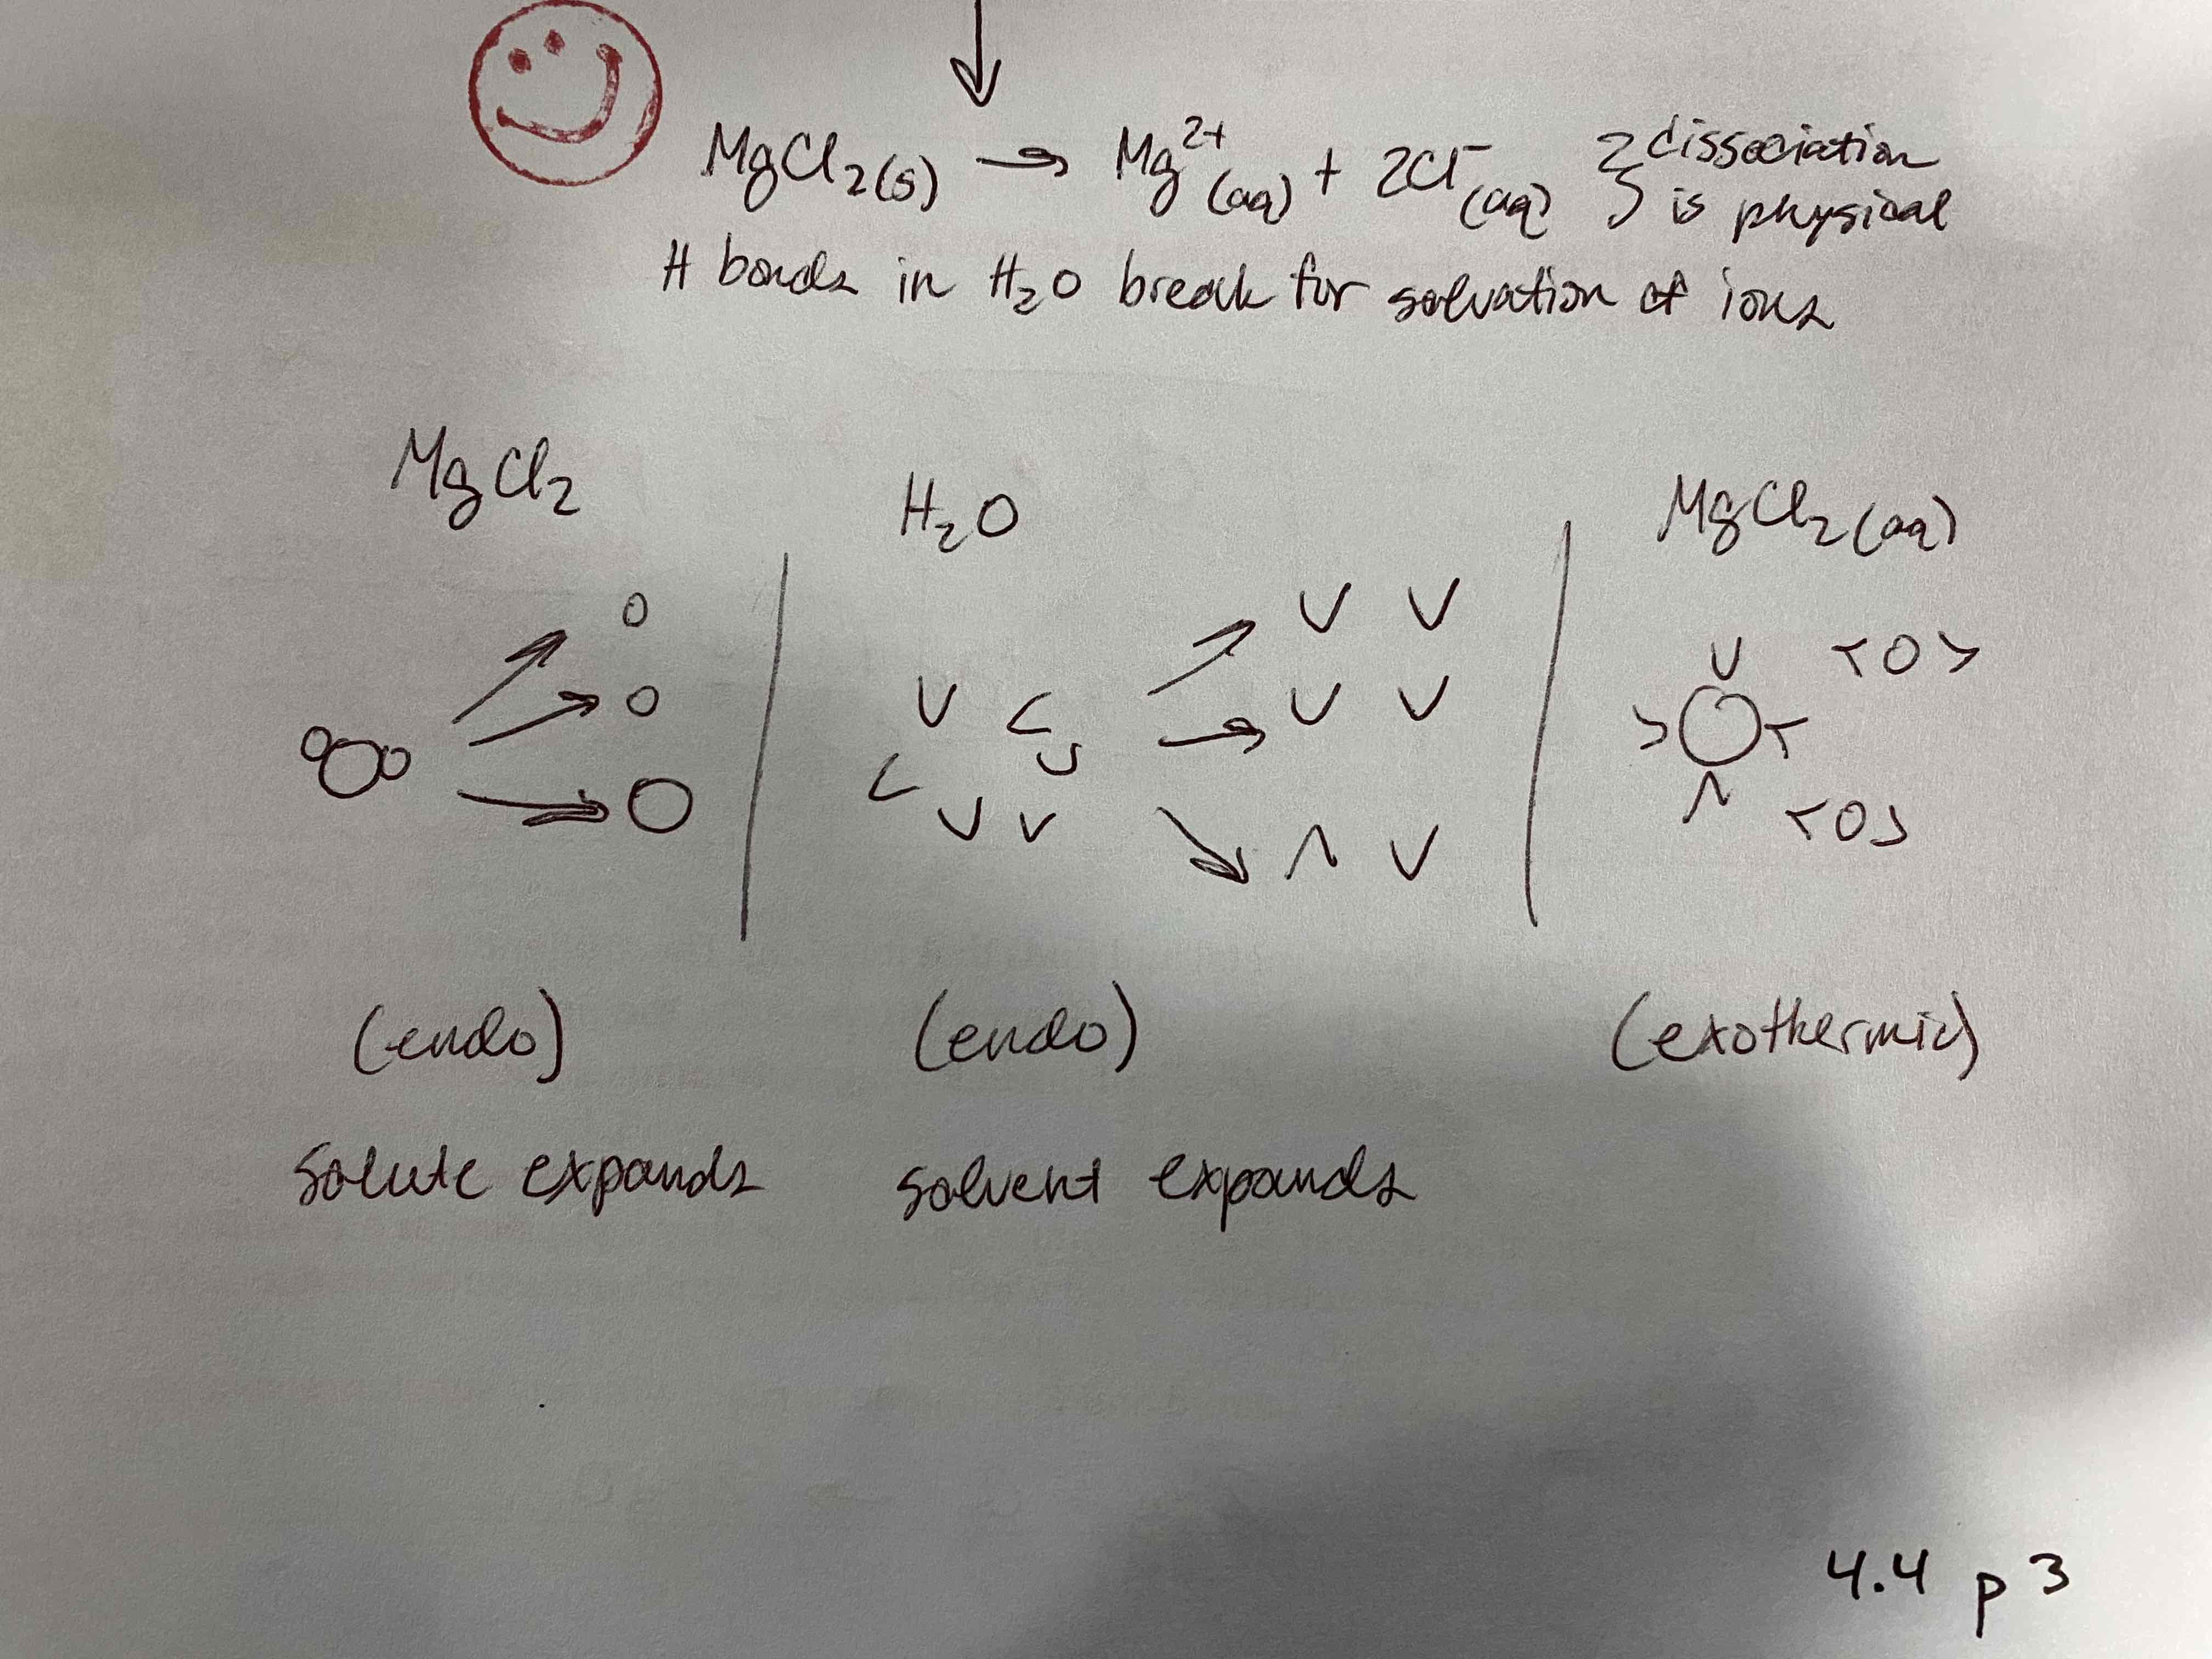 MgCl₂(s) → Mg²⁺(aq) + 2Cl⁻(aq) } dissociation
is physical
H bonds in H₂O break for solvation of ions
MgCl₂
H₂O
MgCl₂(aq)
(endo)
(endo)
(exothermic)
solute expands
solvent expands
4.4 p 3